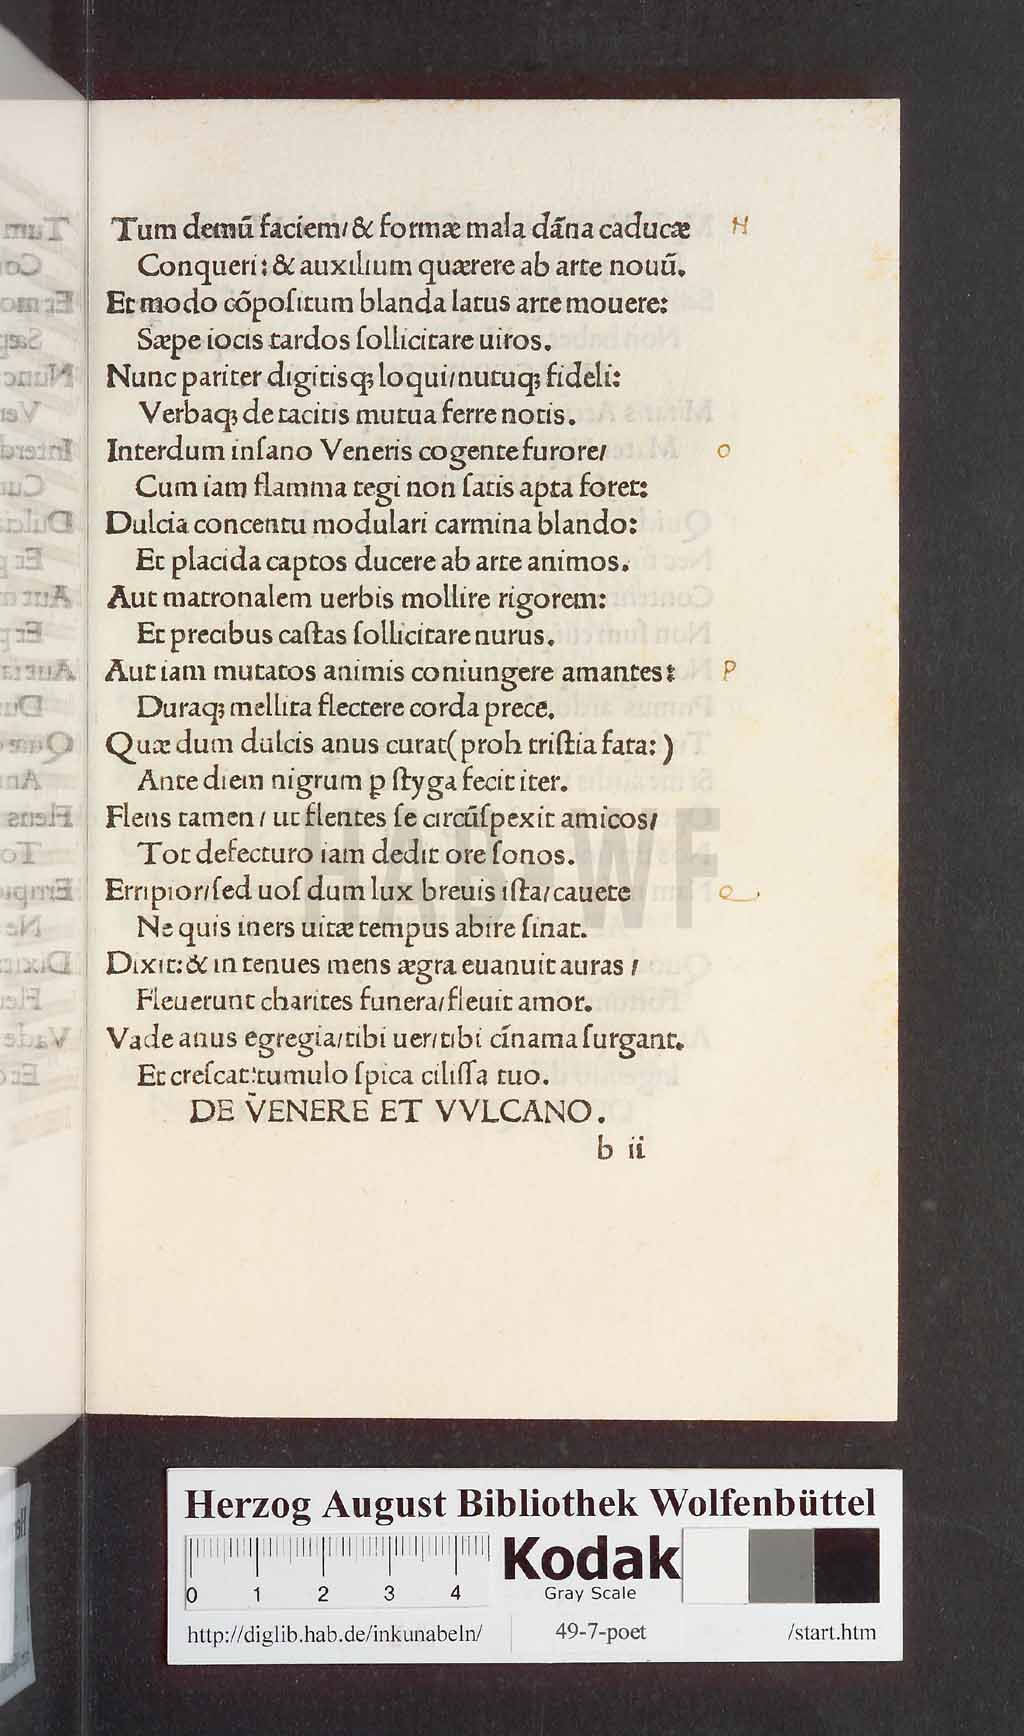 Tum demū faciem/ & formæ mala dāna caducæ N
Conqueri: & auxilium quærere ab arte nouū.
Et modo cōpoſitum blanda latus arte mouere:
Sæpe iocis tardos ſollicitare uiros.
Nunc pariter digitisq; loqui/nutuq; fideli:
Verbaq; de tacitis mutua ferre notis.
Interdum inſano Veneris cogente furore/ O
Cum iam flamma tegi non ſatis apta foret:
Dulcia concentu modulari carmina blando:
Et placida captos ducere ab arte animos.
Aut matronalem uerbis mollire rigorem:
Et precibus caſtas ſollicitare nurus.
Aut iam mutatos animis coniungere amantes: P
Duraq; mellita flectere corda prece.
Quæ dum dulcis anus curat(proh triſtia fata:)
Ante diem nigrum p ſtyga fecit iter.
Flens tamen / ut flentes ſe circūſpexit amicos/
Tot defecturo iam dedit ore ſonos.
Erripior/ſed uoſ dum lux breuis iſta/cauete Q
Ne quis iners uitæ tempus abire ſinat.
Dixit:& in tenues mens ægra euanuit auras /
Fleuerunt charites funera/fleuit amor.
Vade anus egregia/tibi uer/tibi cīnama ſurgant.
Et creſcat:tumulo ſpica ciliſſa tuo.
DE VENERE ET VVLCANO.
b ii
HAB WF
Herzog August Bibliothek Wolfenbüttel
0 1 2 3 4
Kodak
Gray Scale
http://diglib.hab.de/inkunabeln/ 49-7-poet /start.htm